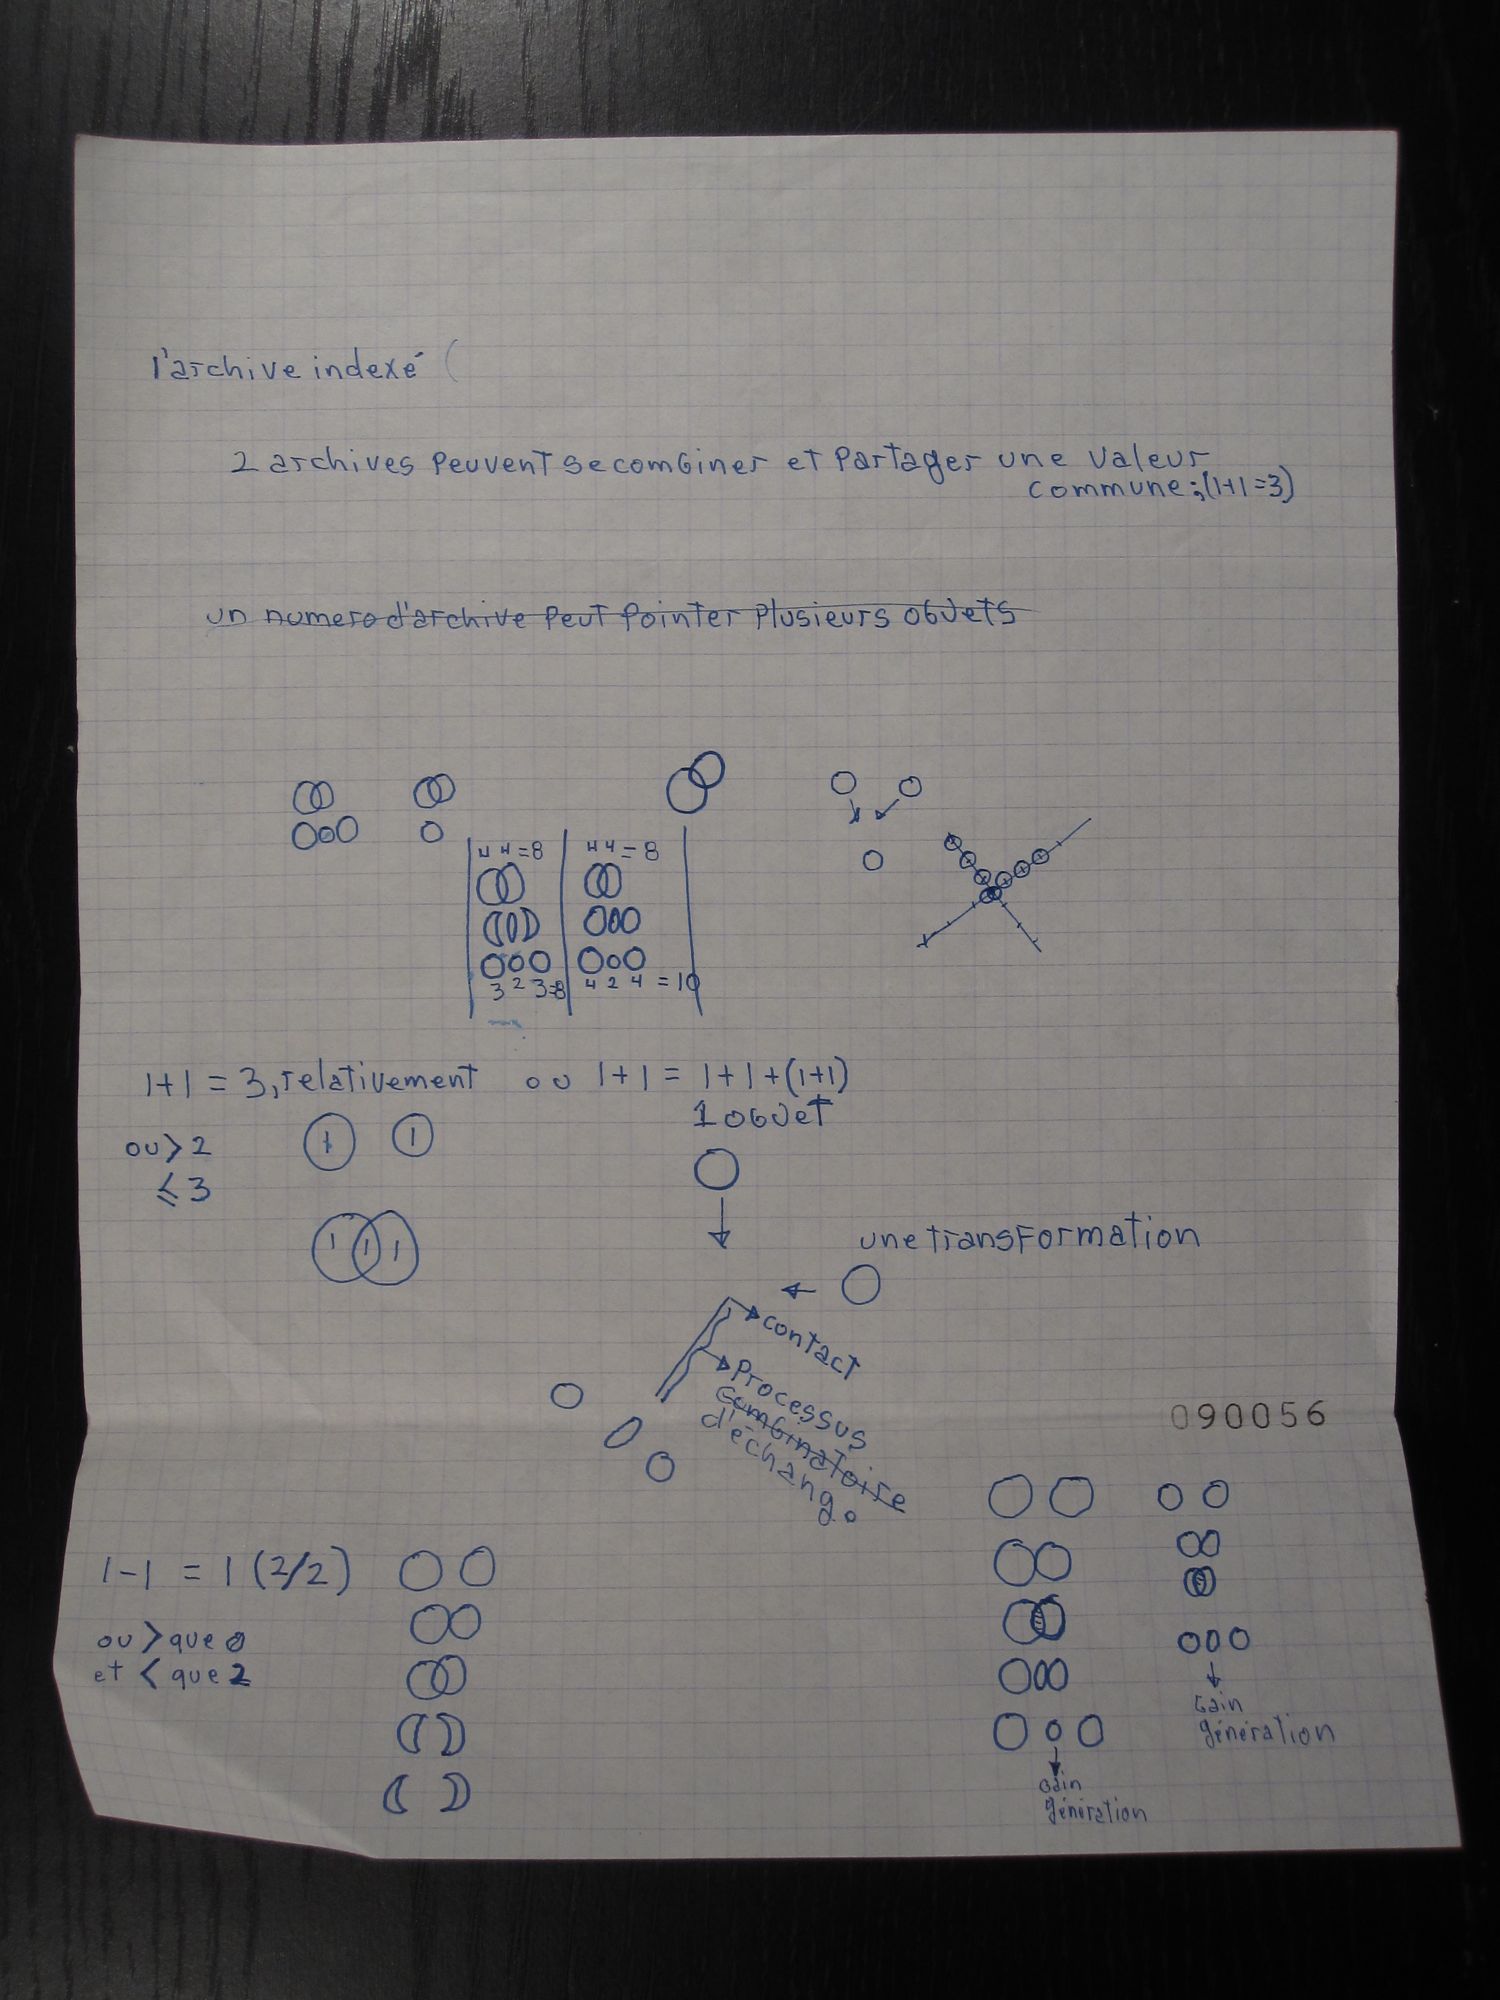 l'archive indexé (
2 archives peuvent se combiner et partager une valeur
commune;(1+1=3)
un numero d'archive peut pointer plusieurs objets
4 4=8
4 4=8
3 2 3=8
4 2 4 =10
1+1 = 3, relativement ou 1+1 = 1+1+(1+1)
1 objet
ou > 2
≤ 3
1 1
1 1 1
une transformation
contact
processus
combinatoire
d'échang.
090056
1-1 = 1 (2/2)
ou > que 0
et < que 2
Gain
génération
Gain
génération